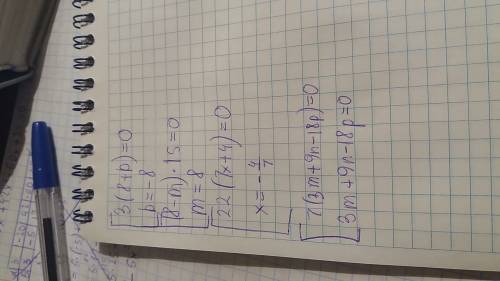 3(8+p)=0
p=-8
(8-m)·15=0
m=8
22(7x+4)=0
x=-4/7
7(3m+9n-18p)=0
3m+9n-18p=0